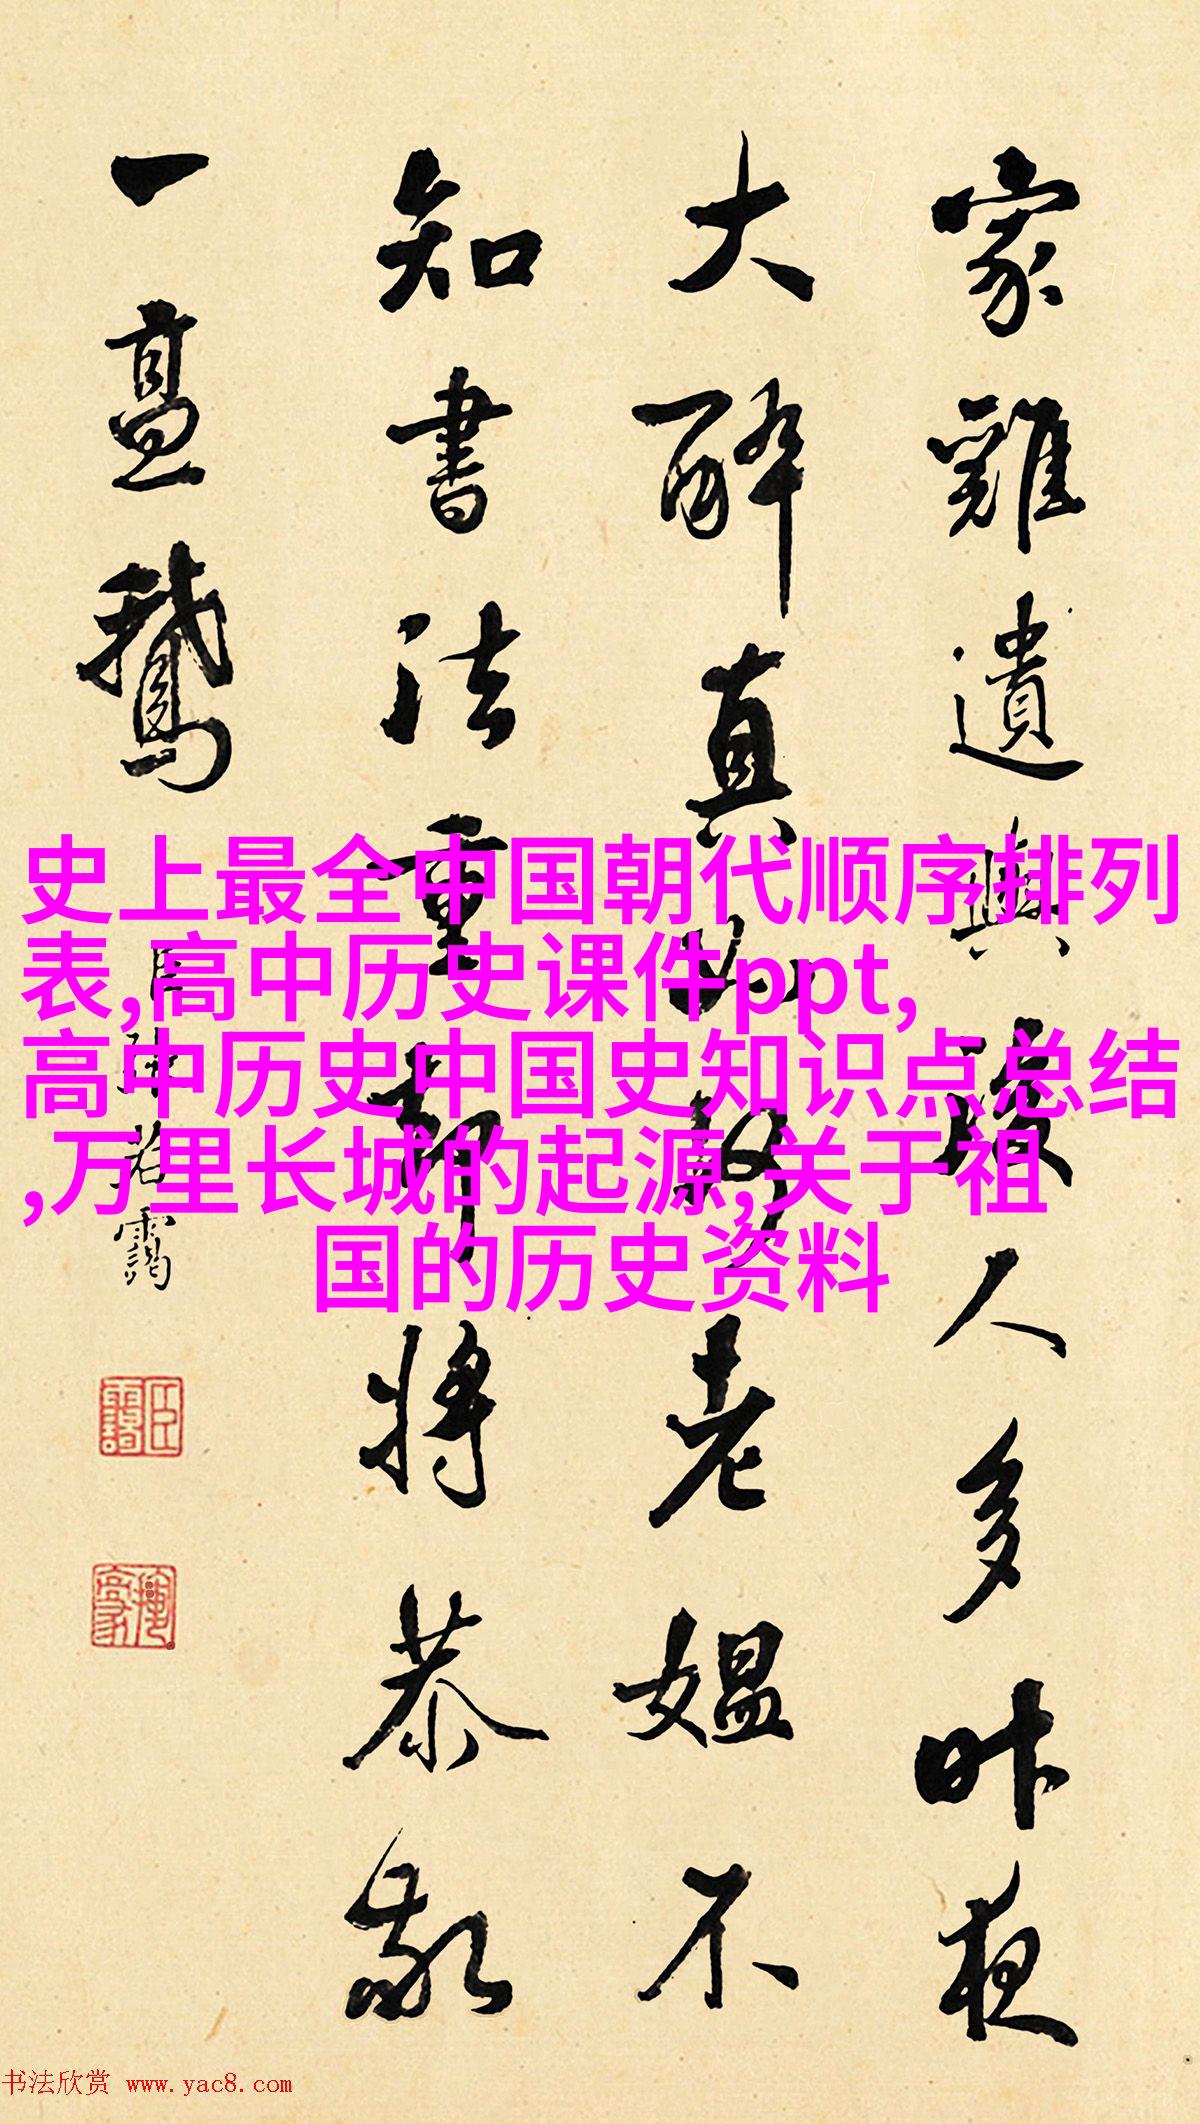 家雞遺興淩人多昨夜
大醉真如黠老媼不
知書法重却將恭敬
一䀇鵞
臣張若靄
史上最全中国朝代顺序排列
表,高中历史课件ppt,
高中历史中国史知识点总结
,万里长城的起源,关于祖
国的历史资料
书法欣赏 www.yac8.com